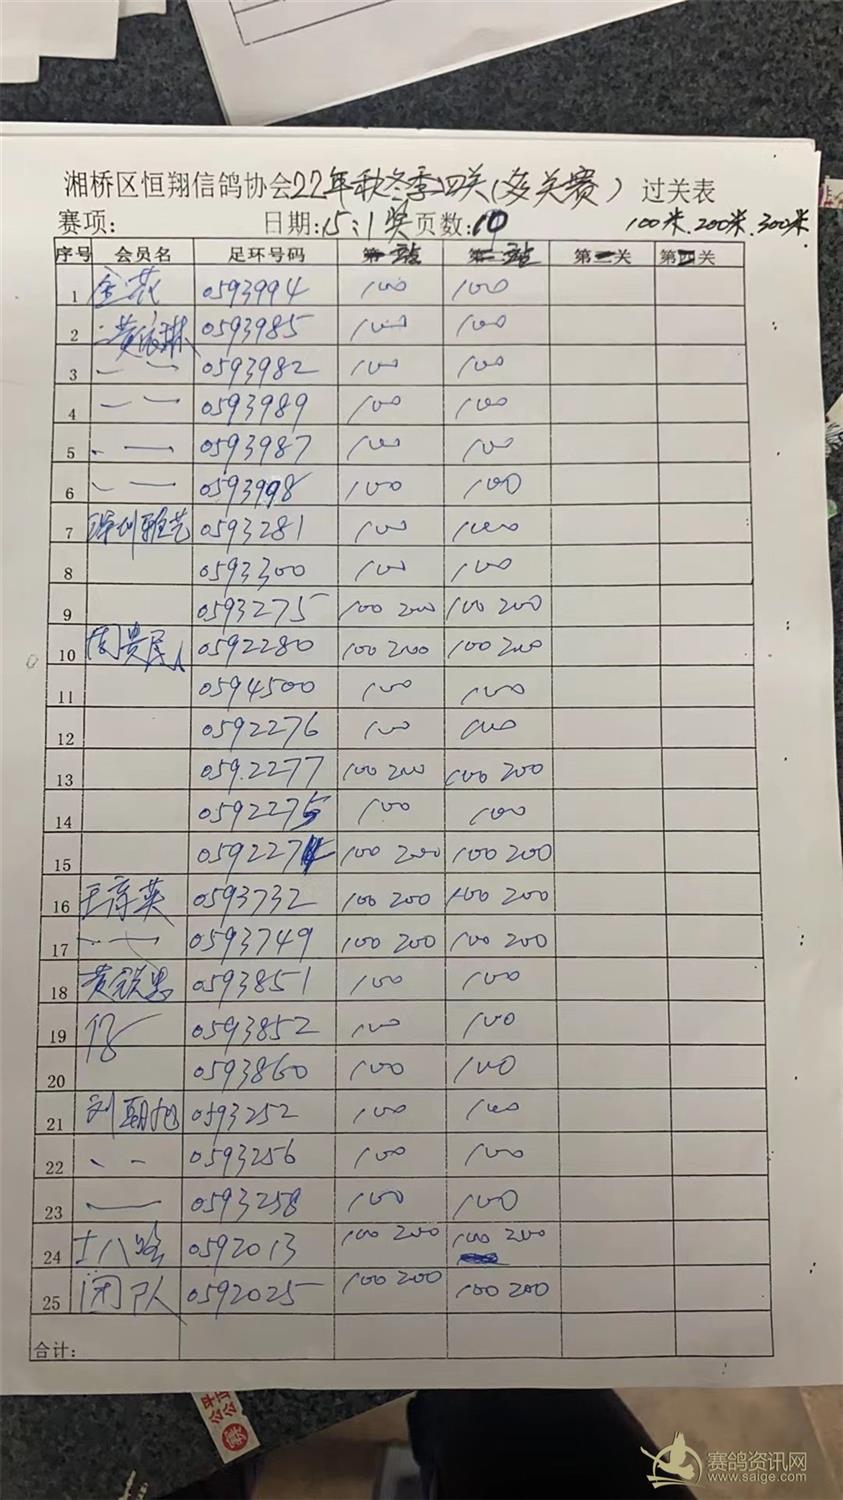 湘桥区恒翔信鸽协会22年秋冬季四关(多关赛) 过关表
赛项: 日期:15:1奖 页数:10 100米.200米.300米
序号 会员名 足环号码 第一站 第二站 第三关 第四关
1 金花 0593994 100 100
2 黄依琳 0593985 100 100
3 一 一 0593982 100 100
4 一 一 0593989 100 100
5 一 一 0593987 100 100
6 一 一 0593998 100 100
7 深圳雅艺 0593281 100 100
8 0593300 100 100
9 0593275 100 200 100 200
10 周贵民 0592280 100 200 100 200
11 0594500 100 100
12 0592276 100 100
13 0592277 100 200 100 200
14 0592275 100 100
15 0592274 100 200 100 200
16 王亭英 0593732 100 200 100 200
17 一 一 0593749 100 200 100 200
18 黄锐忠 0593851 100 100
19 0593852 100 100
20 0593860 100 100
21 刘朝旭 0593252 100 100
22 一 一 0593256 100 100
23 一 0593258 100 100
24 十八路 0592013 100 200 100 200
25 团队 0592025 100 200 100 200
合计:
赛鸽资讯网
www.saige.com